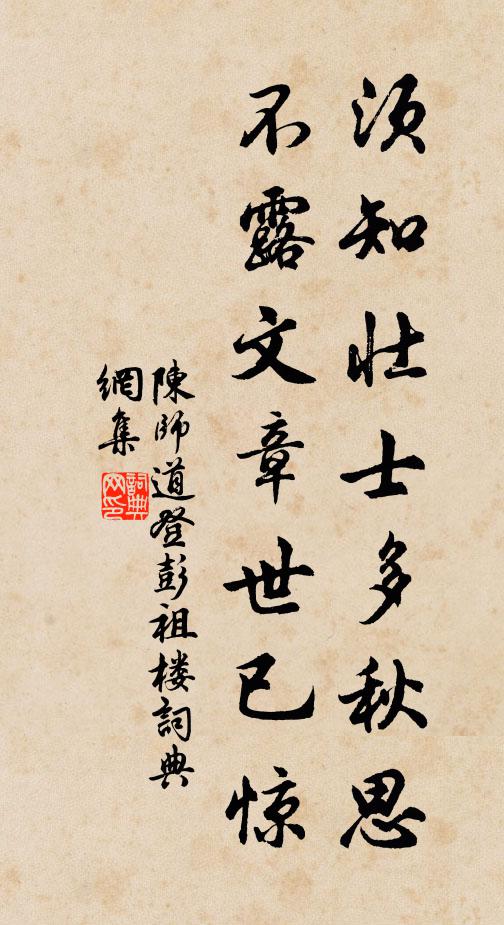 须知壮士多秋思
不露文章世已惊
陳師道登彭祖楼詞典
網集
詞典
网印